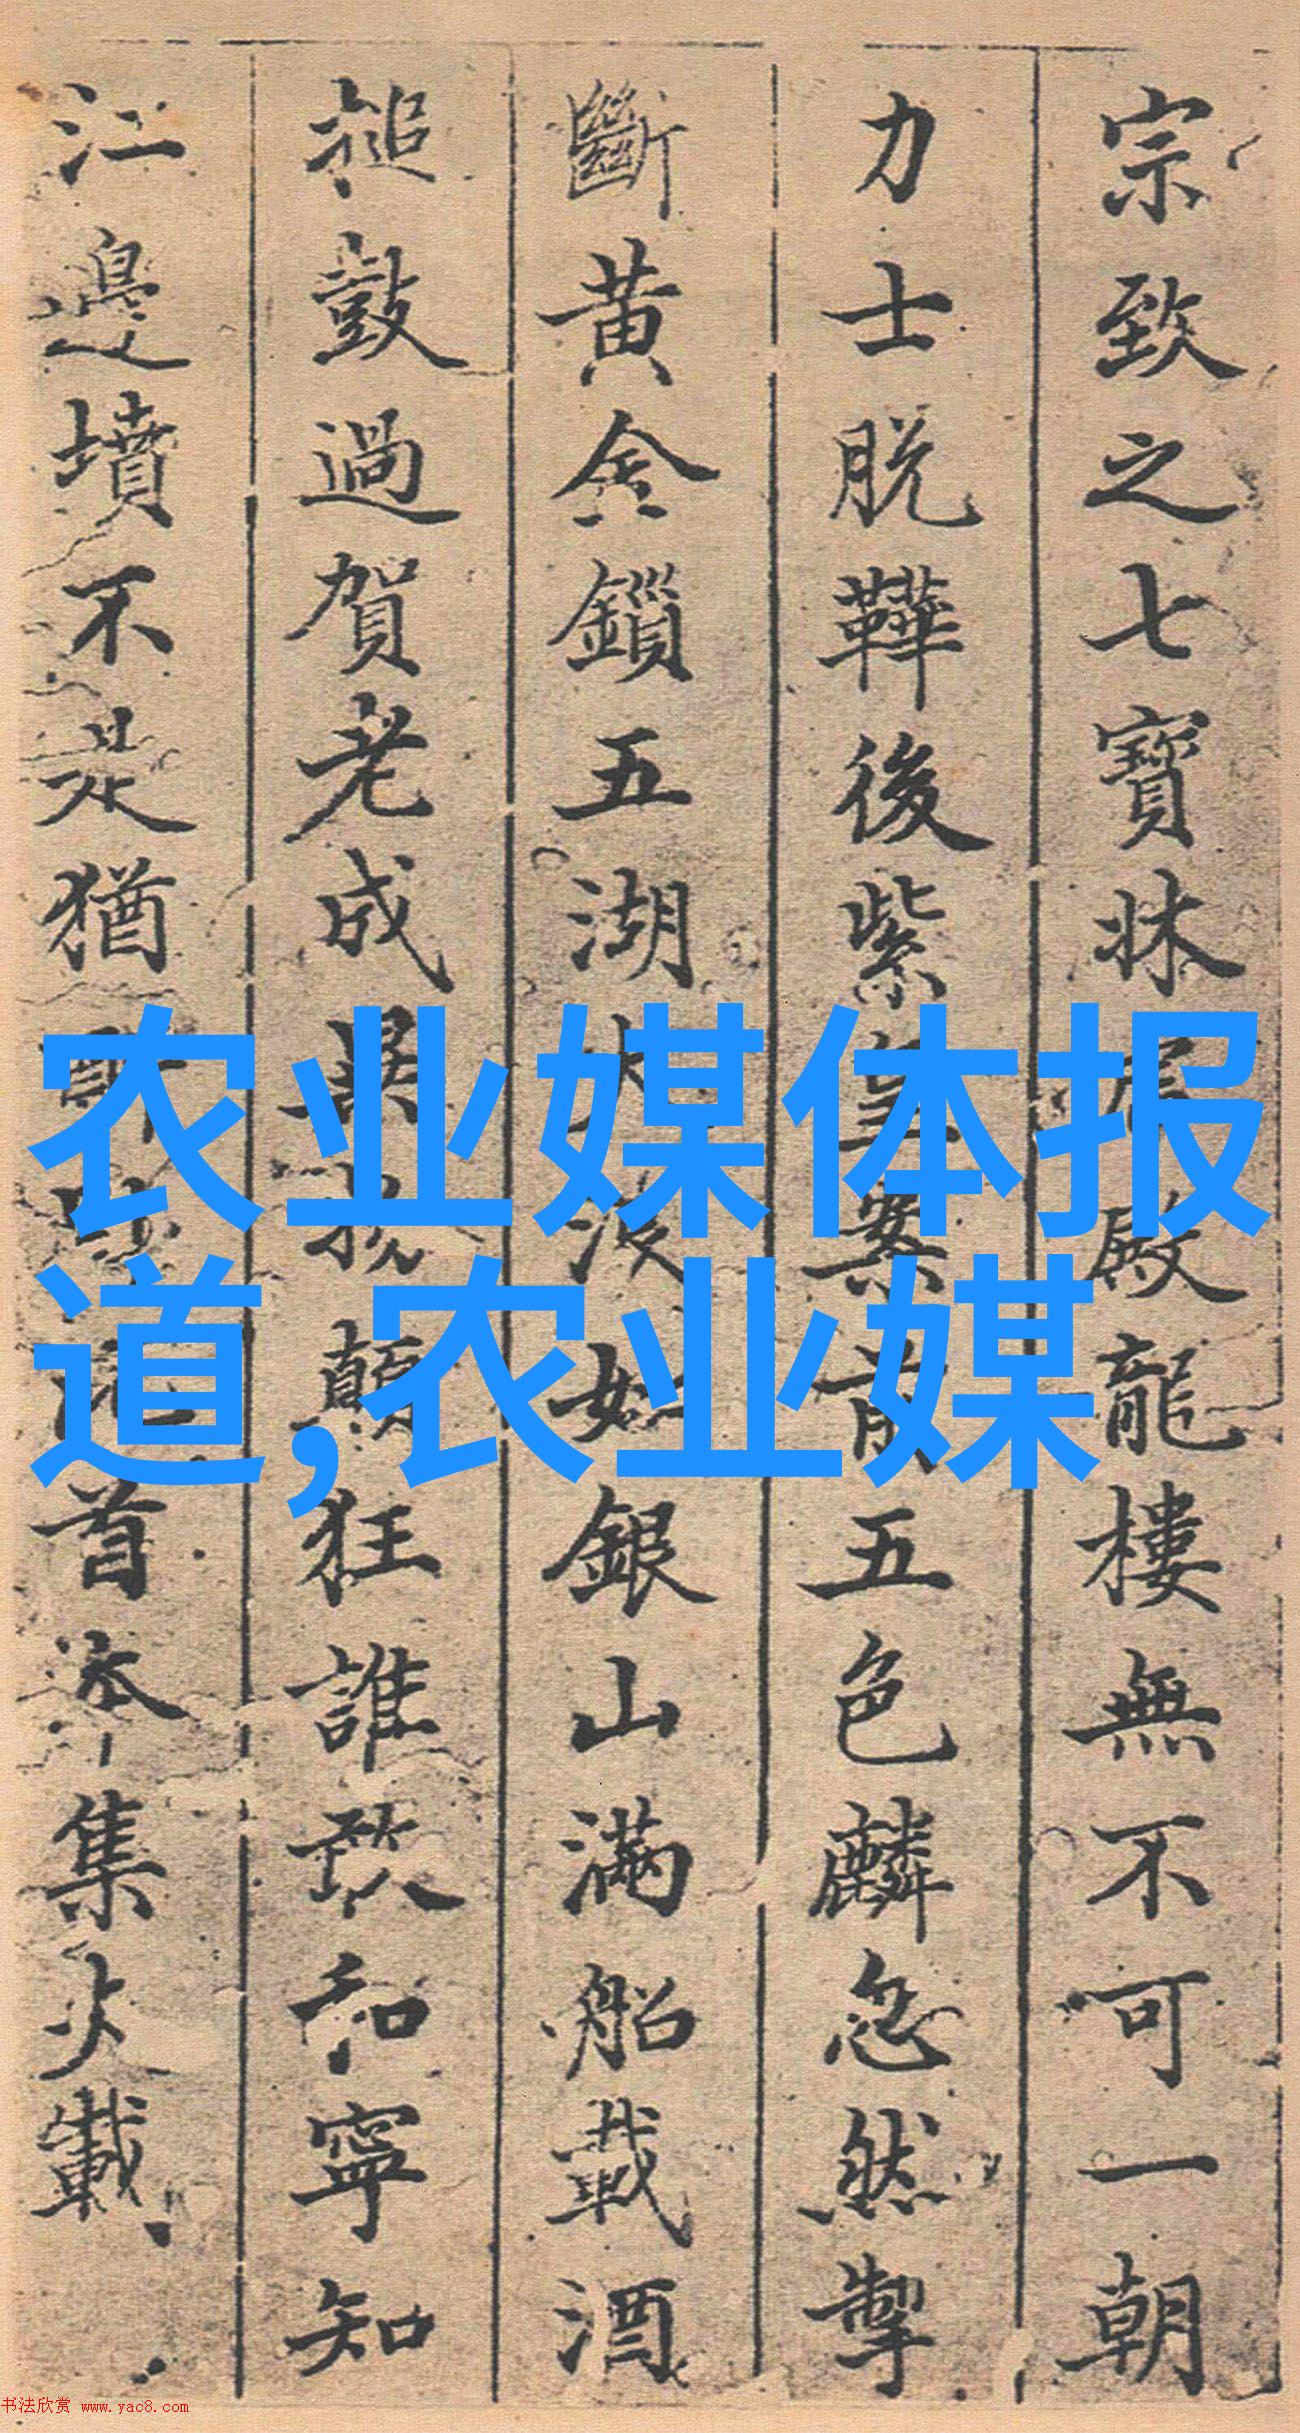 宗致之七寶牀
殿龍樓無不可一朝
力士脱鞾後紫
五色麟忽然掣
斷黄金鎖五湖
如銀山滿船載酒
搥鼓過賀老成異物
顛狂誰敢和寧知
江邊墳不是猶
首本集火載
农业媒体报
道,农业媒
书法欣赏 www.yac8.com